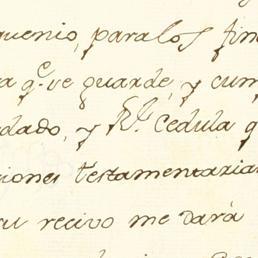 quenio, para los fin
a q.e ve guarde, y cum
dado, y R.l Cedula q
ciones testamentaria
su recivo me dará